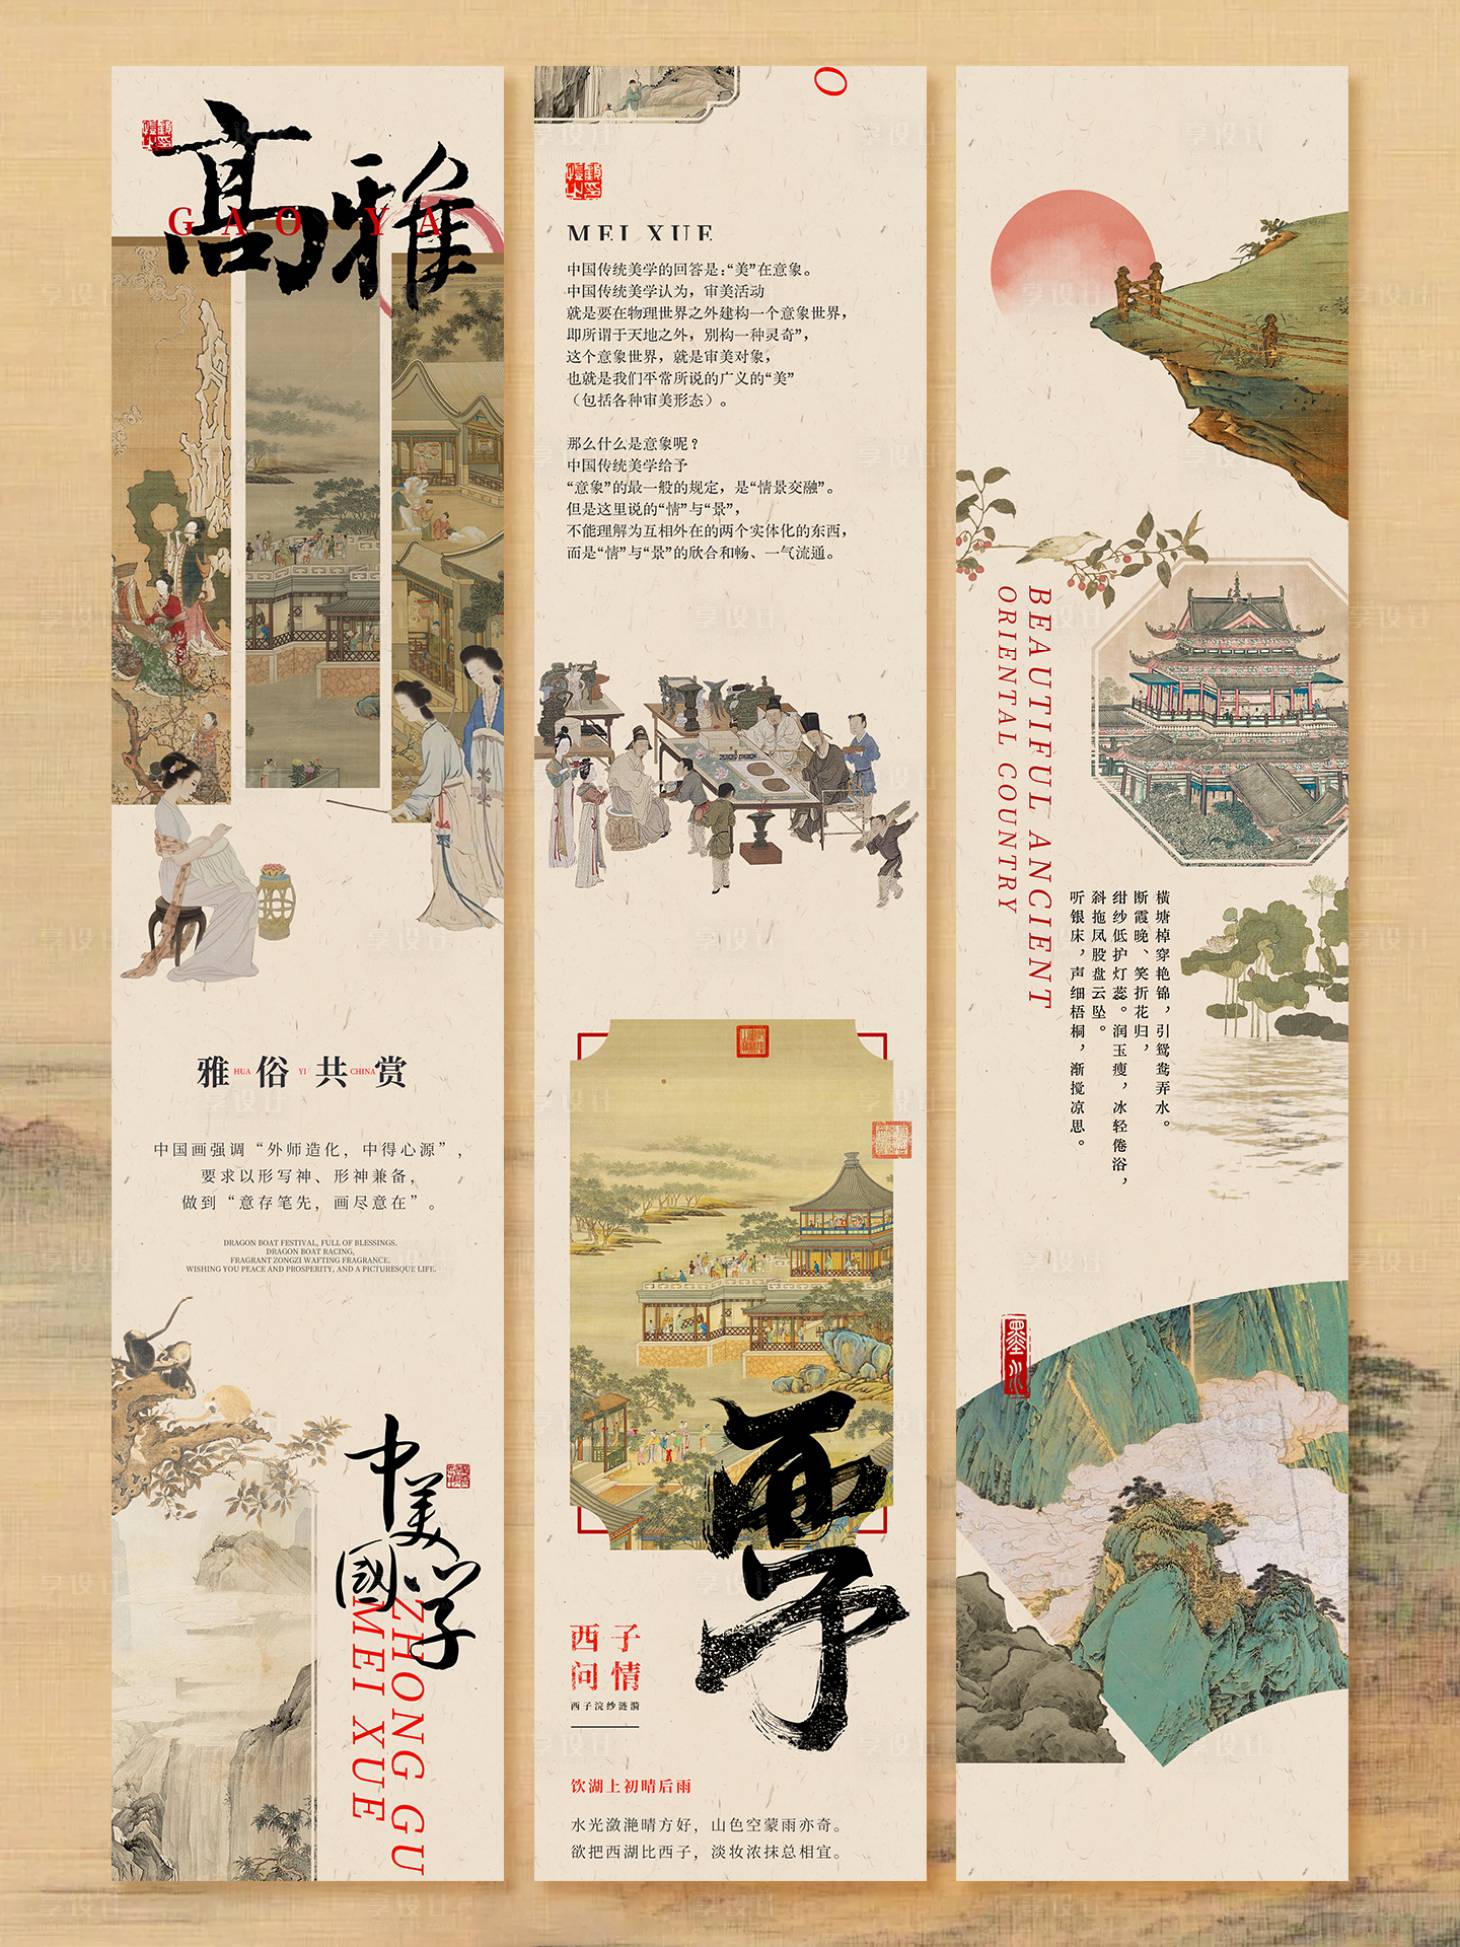 高雅
GAO YA
雅俗共赏
HUA YI CHINA
中国画强调“外师造化，中得心源”，
要求以形写神、形神兼备，
做到“意存笔先，画尽意在”。
DRAGON BOAT FESTIVAL, FULL OF BLESSINGS.
DRAGON BOAT RACING,
FRAGRANT ZONGZI WAFTING FRAGRANCE.
WISHING YOU PEACE AND PROSPERITY, AND A PICTURESQUE LIFE.
中國
美学
ZHONG GU
MEI XUE
O
MEI XUE
中国传统美学的回答是：“美”在意象。
中国传统美学认为，审美活动
就是要在物理世界之外建构一个意象世界，
即所谓于天地之外，别构一种灵奇”，
这个意象世界，就是审美对象，
也就是我们平常所说的广义的“美”
（包括各种审美形态）。
那么什么是意象呢？
中国传统美学给予
“意象”的最一般的规定，是“情景交融”。
但是这里说的“情”与“景”，
不能理解为互相外在的两个实体化的东西，
而是“情”与“景”的欣合和畅、一气流通。
西子
西子
问情
西子浣纱涟漪
饮湖上初晴后雨
水光潋滟晴方好，山色空蒙雨亦奇。
欲把西湖比西子，淡妆浓抹总相宜。
BEAUTIFUL ANCIENT
ORIENTAL COUNTRY
横塘棹穿艳锦，引鸳鸯弄水。
断霞晚、笑折花归，
绀纱低护灯蕊。润玉瘦，冰轻倦浴，
斜拖凤股盘云坠。
听银床，声细梧桐，渐搅凉思。
墨心
享设计